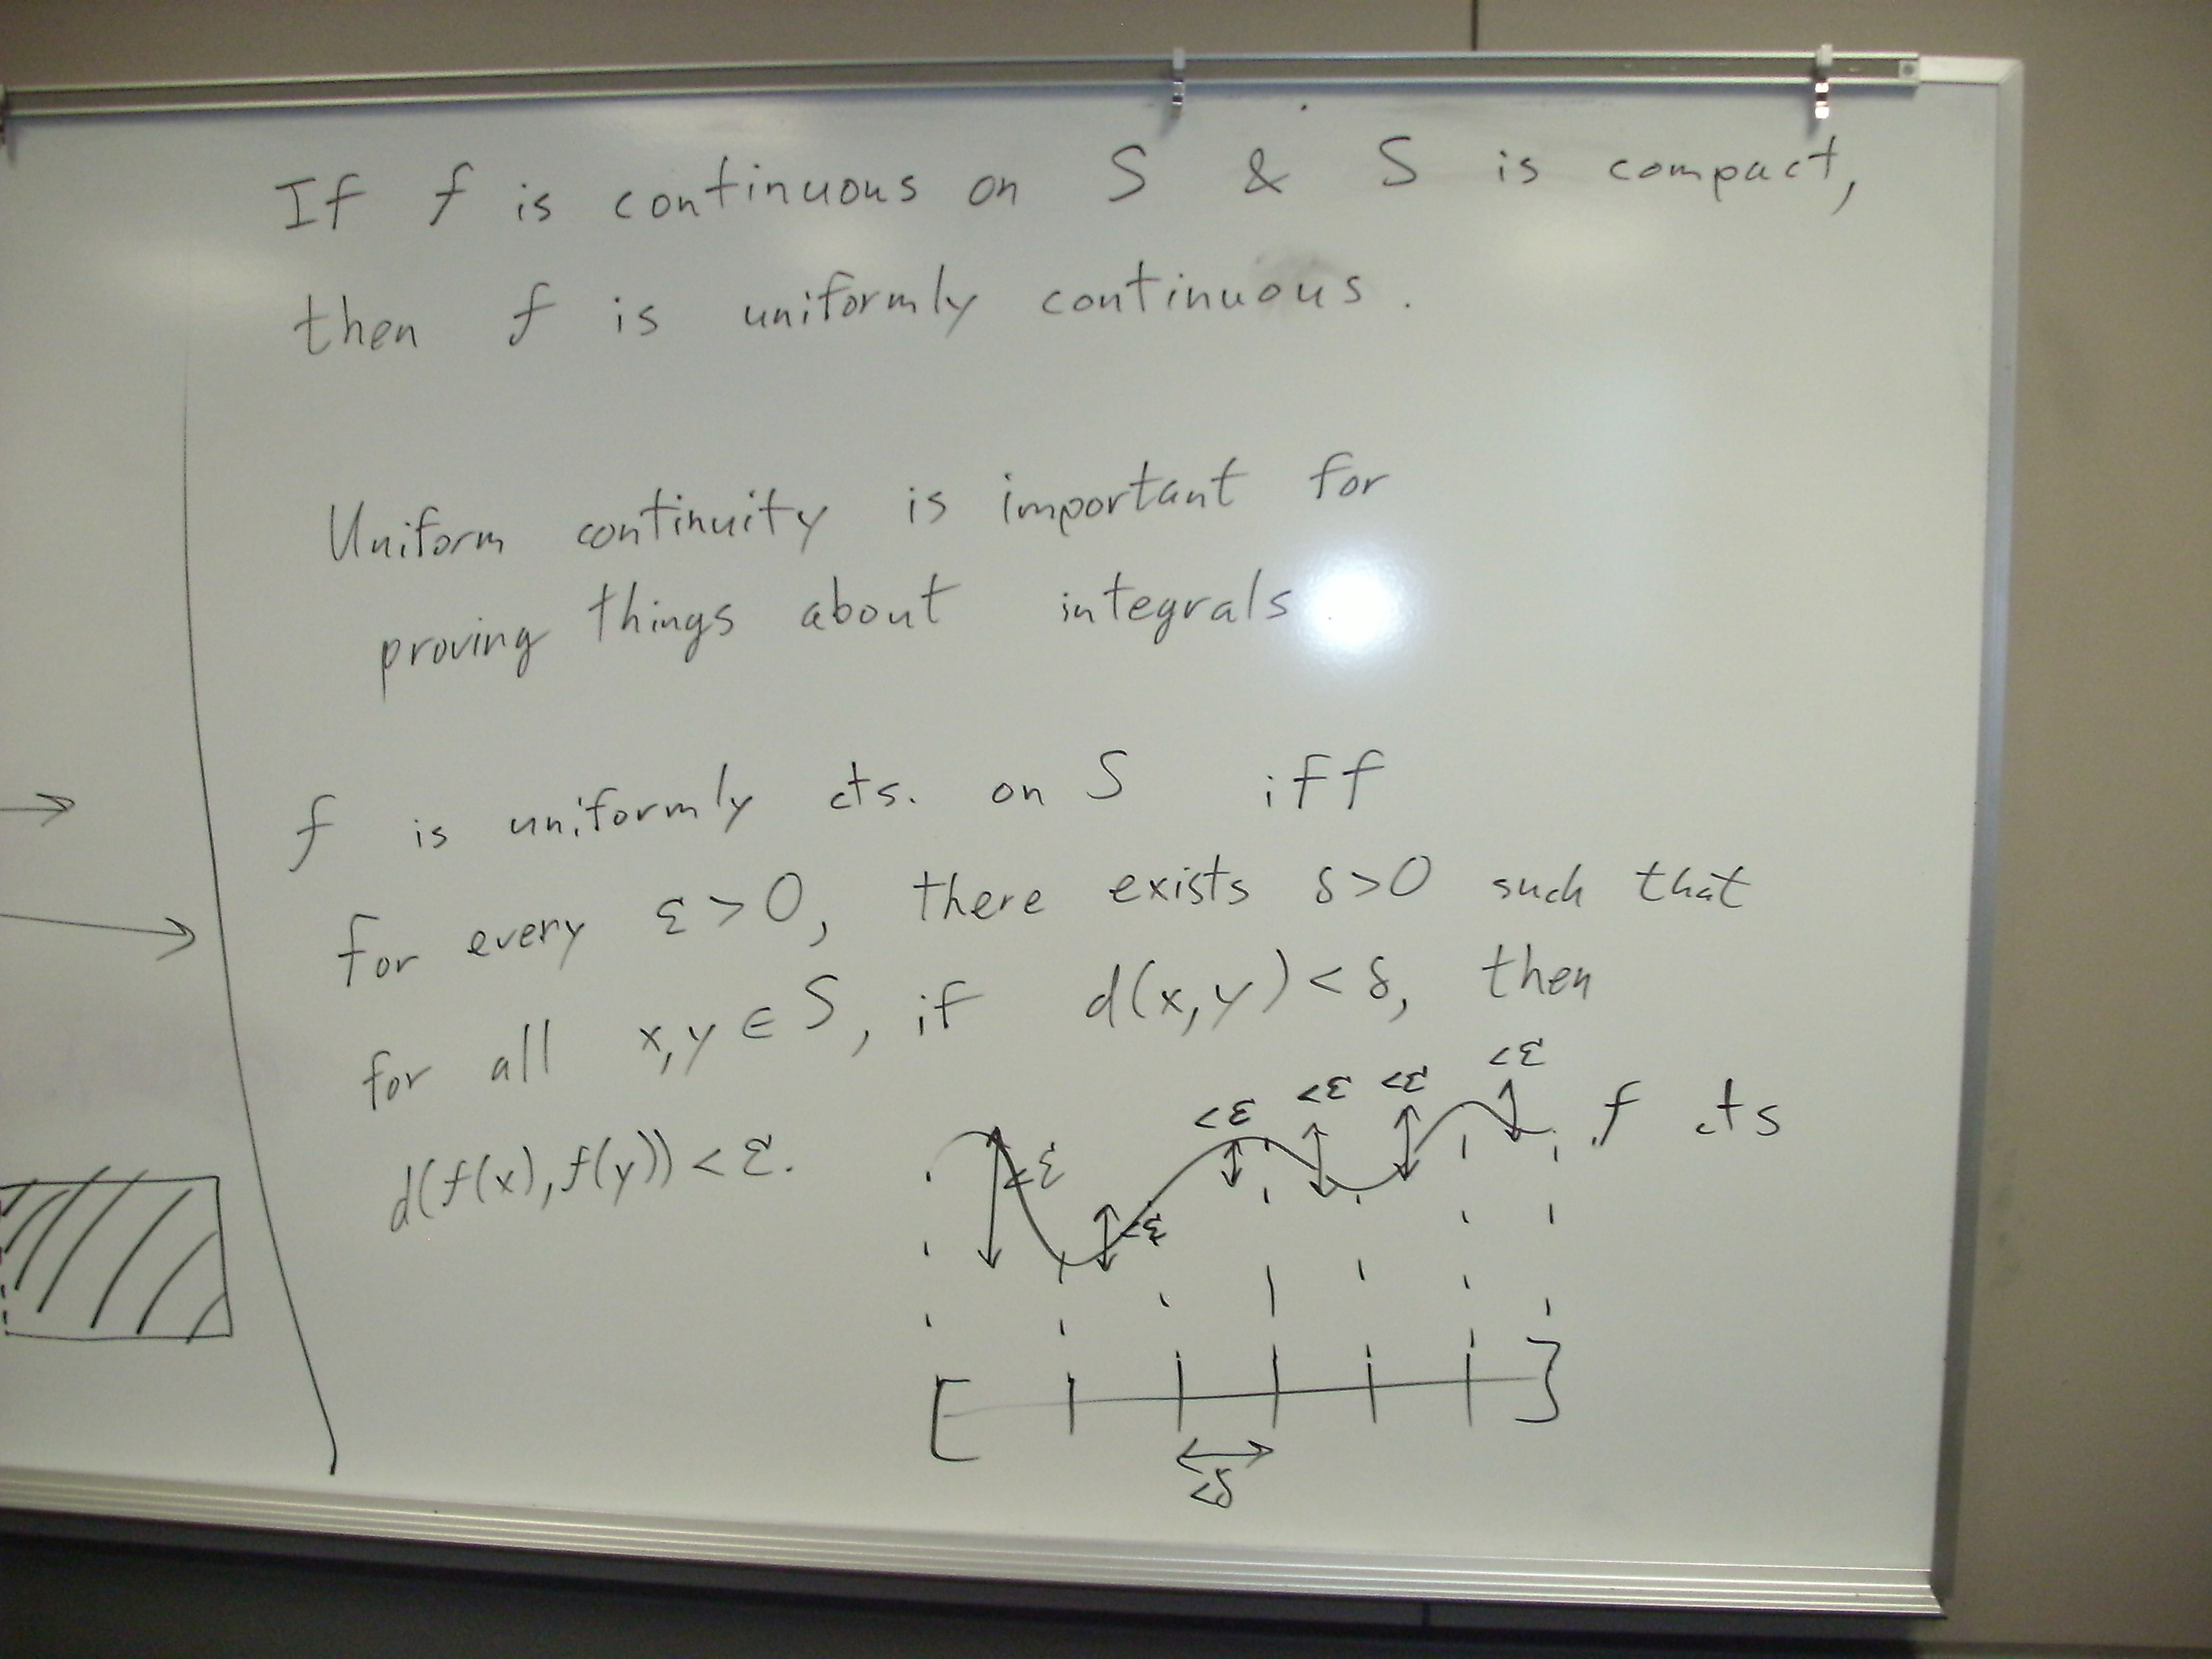 If f is continuous on S & S is compact,
then f is uniformly continuous.
Uniform continuity is important for
proving things about integrals
f is uniformly cts. on S iff
for every ε>0, there exists δ>0 such that
for all x,y ∈ S, if d(x,y)<δ, then
d(f(x),f(y))<ε.
<ε
<ε
<ε
<ε
<ε
<ε
f cts
<δ